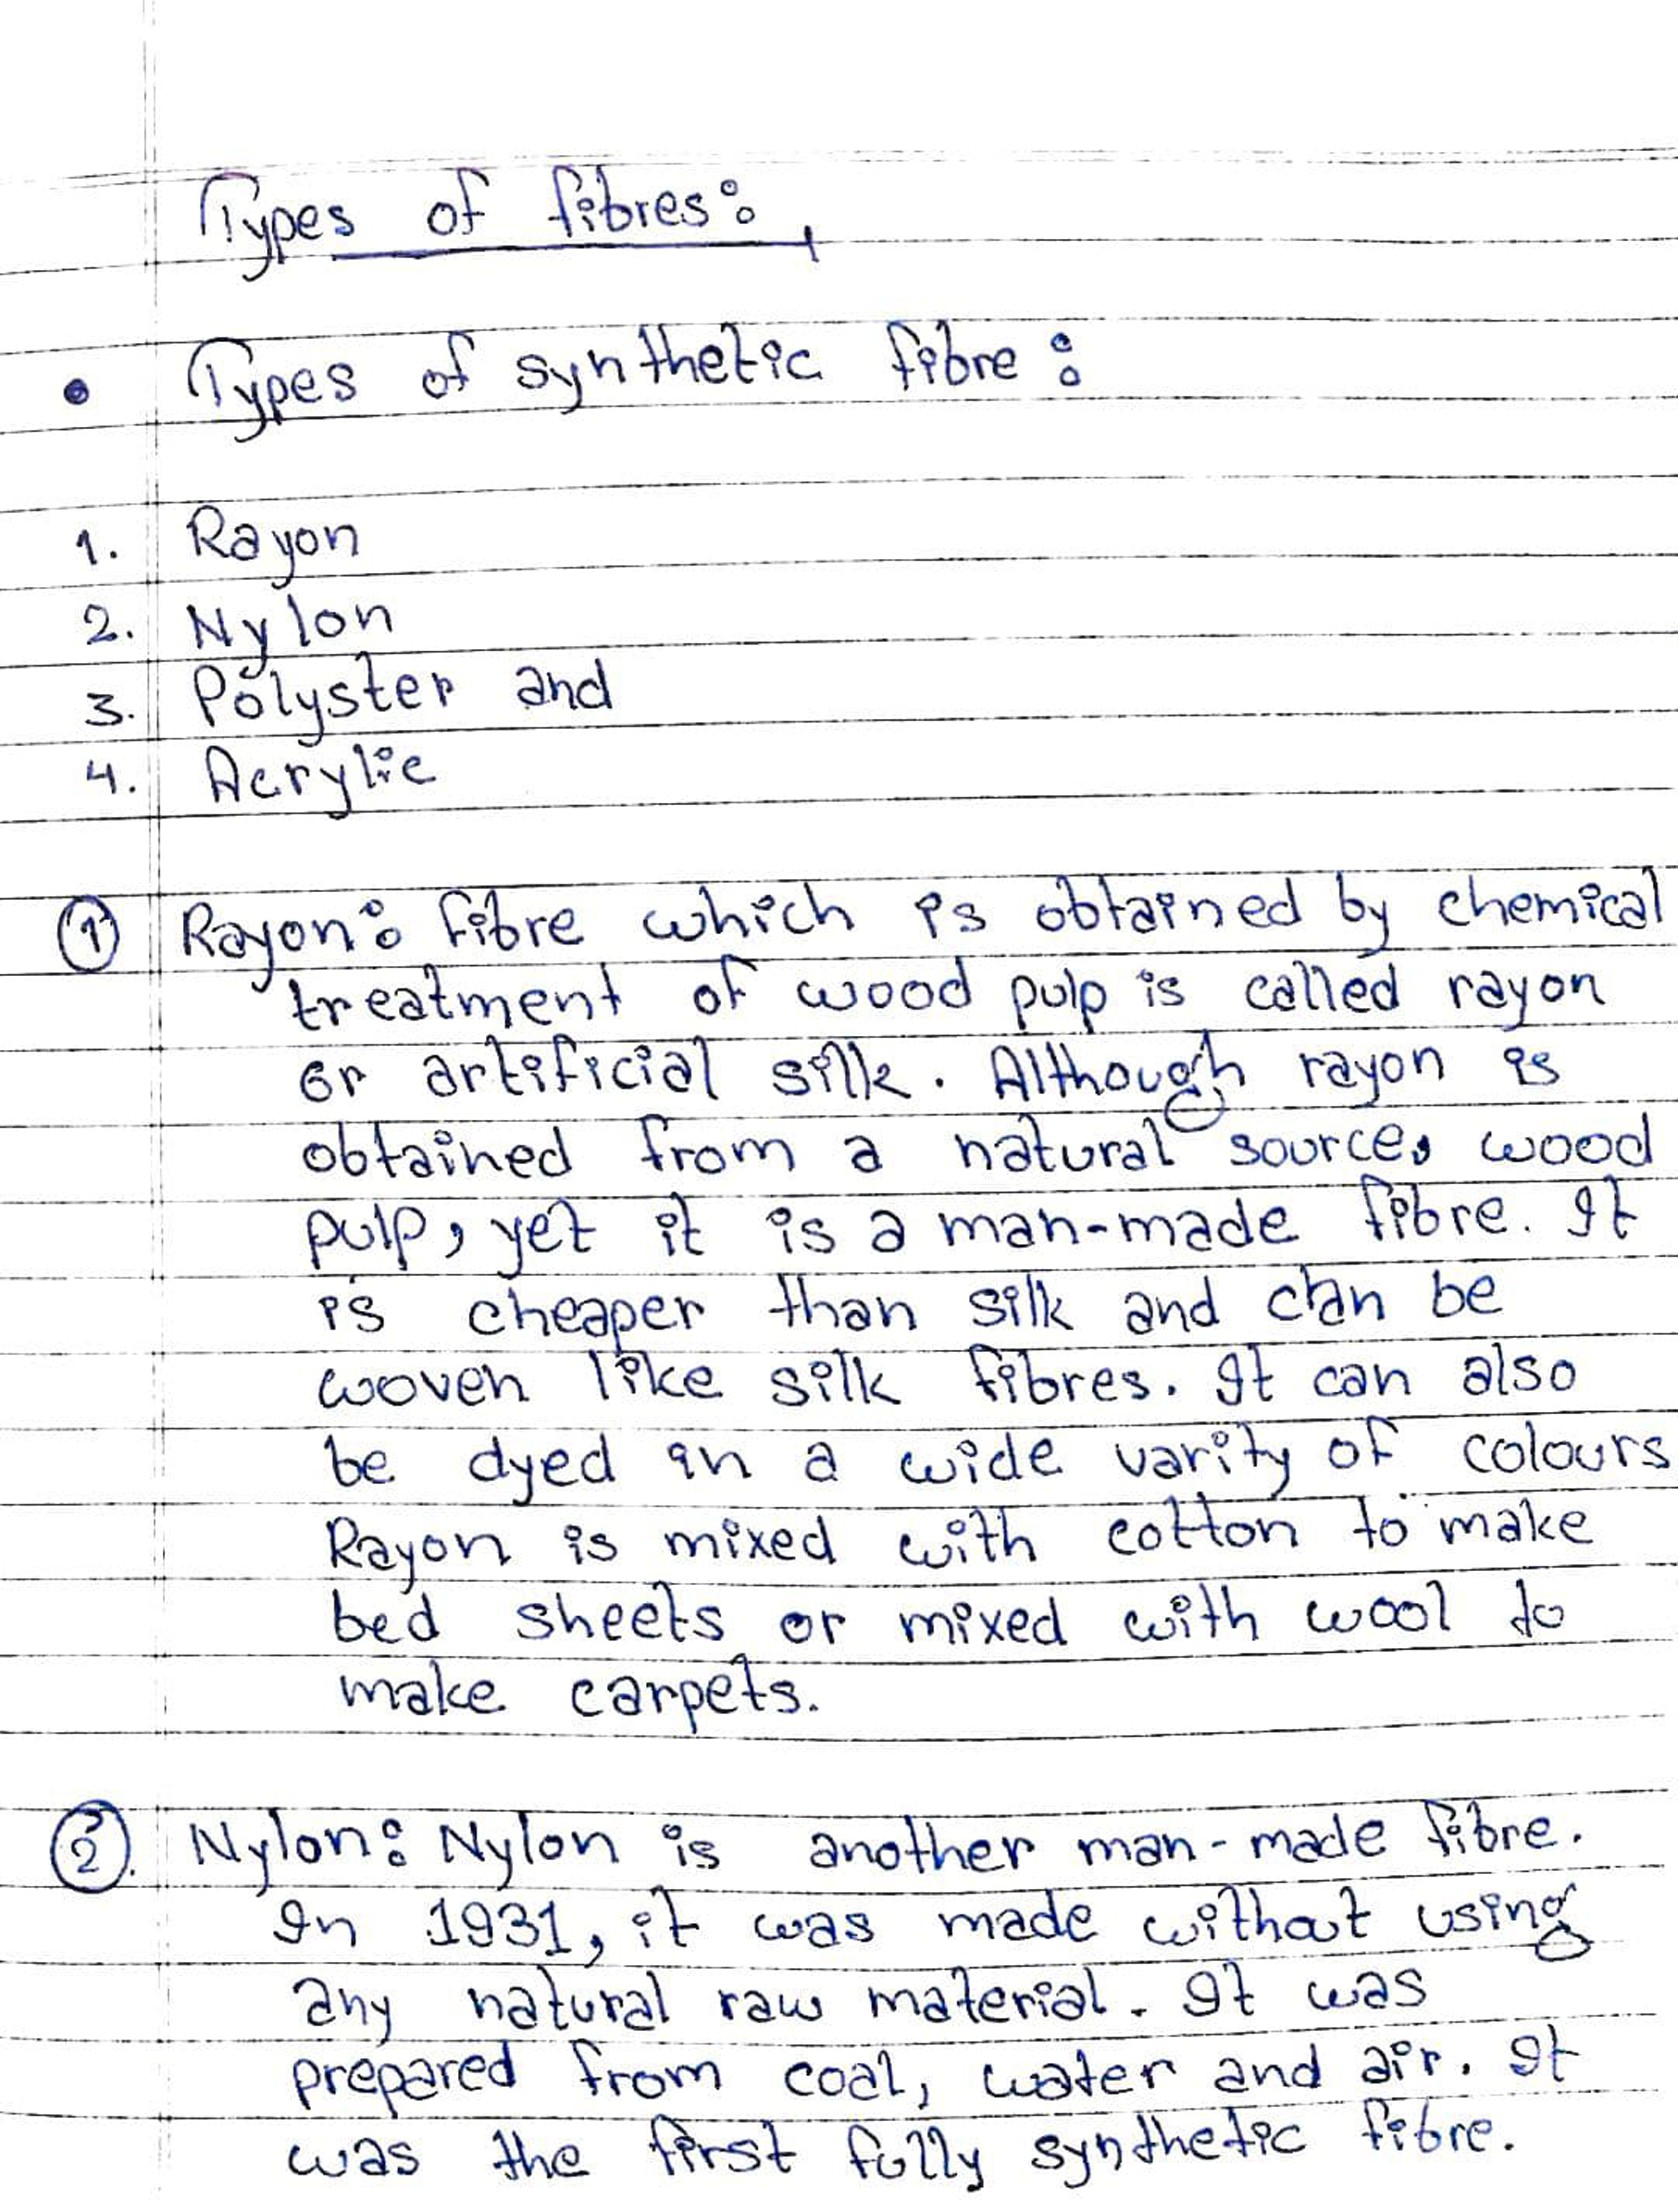 Types of fibres:
• Types of synthetic fibre:
1. Rayon
2. Nylon
3. Polyster and
4. Acrylic
① Rayon: fibre which is obtained by chemical
treatment of wood pulp is called rayon
or artificial silk. Although rayon is
obtained from a natural source, wood
pulp, yet it is a man-made fibre. It
is cheaper than silk and can be
woven like silk fibres. It can also
be dyed in a wide varity of colours
Rayon is mixed with cotton to make
bed sheets or mixed with wool to
make carpets.
② Nylon: Nylon is another man-made fibre.
In 1931, it was made without using
any natural raw material. It was
prepared from coal, water and air. It
was the first fully synthetic fibre.